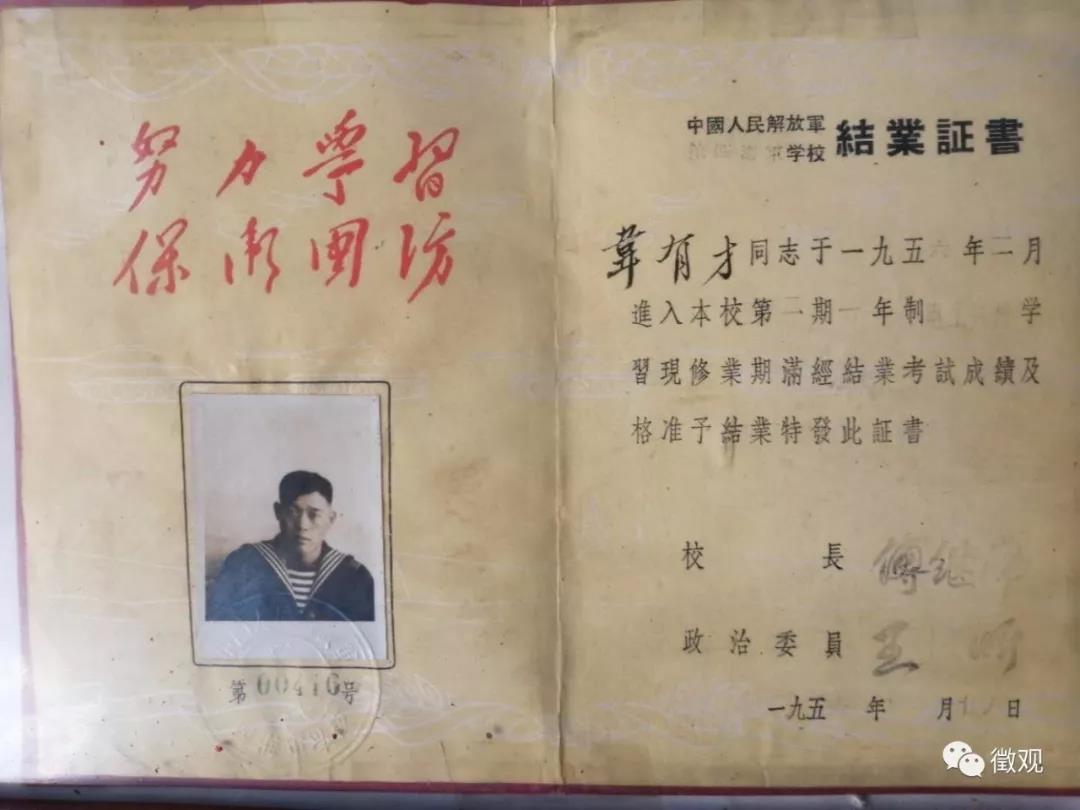 努力學習
保衛國防
第00416号
中國人民解放軍
學校
結業証書
韋有才同志于一九五六年二月
進入本校第二期一年制 学
習現修業期滿經結業考試成績及
格准予結業特發此証書
校長 傅继
政治委員 王昕
一九五 年 月 日
徽观